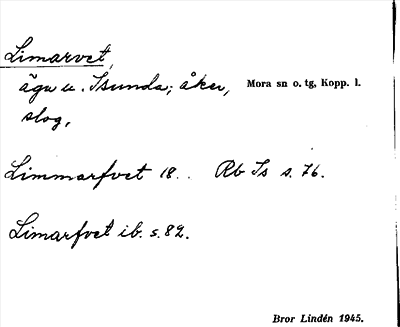 Limarvet,
ägu u. Isunda; åker, Mora sn o. tg, Kopp. l.
slog,
Limmarfvet 18 . . Rb Is s. 76.
Limarfvet ib. s. 82.
Bror Lindén 1945.